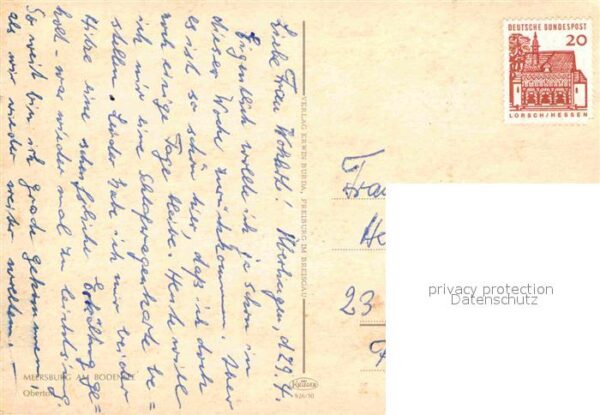 Überlingen, d. 29. 4.
Liebe Frau
Eigentlich wollte ich ja schon in
dieser Woche zurückkommen. Aber
es ist so schön hier, daß ich doch
noch einige Tage bleibe. Heute will
ich mir eine Schlafwagenkarte be=
stellen. Leider habe ich mir bei der
Hitze eine scheußliche Erkältung ge=
holt - war wieder mal zu leichtsinnig.
So weit bin ich grade gekommen,
als wir wieder weiter wollten. —
MEERSBURG AM BODENSEE
Obertor
VERLAG ERWIN BURDA, FREIBURG IM BREISGAU
KRÜGER
926/30
DEUTSCHE BUNDESPOST
20
LORSCH/HESSEN
Frau
He
23
privacy protection
Datenschutz